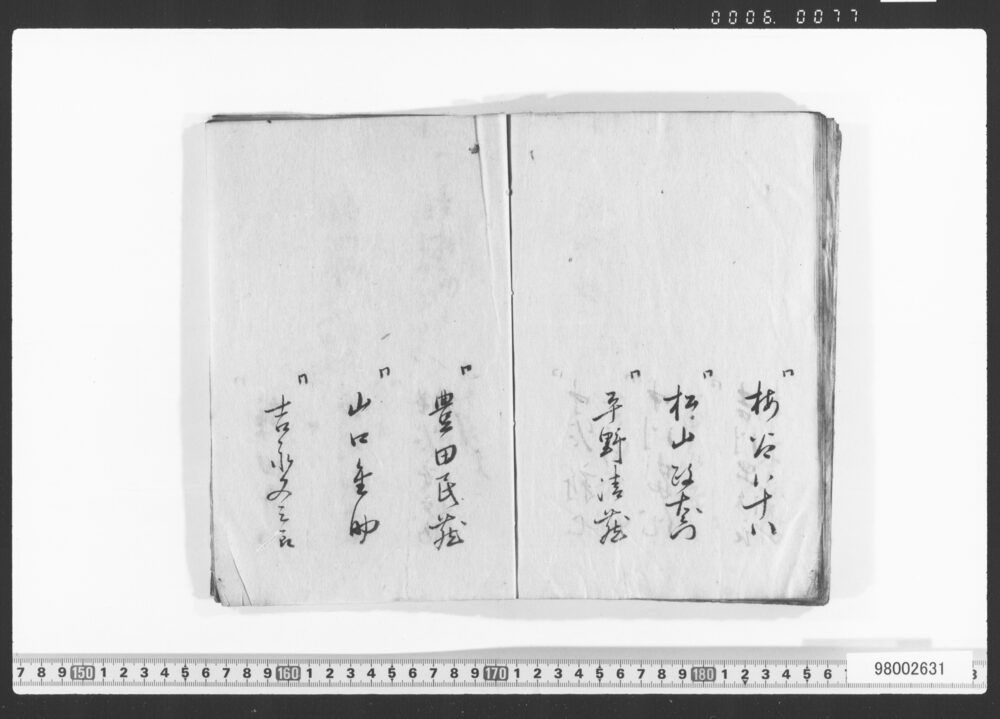 0006. 0077
梅谷八十八
松山政右衛門
平野清蔵
豊田民蔵
山口重助
吉永又三郎
7 8 9 150 1 2 3 4 5 6 7 8 9 160 1 2 3 4 5 6 7 8 9 170 1 2 3 4 5 6 7 8 9 180 1 2 3 4 5 6 8
98002631